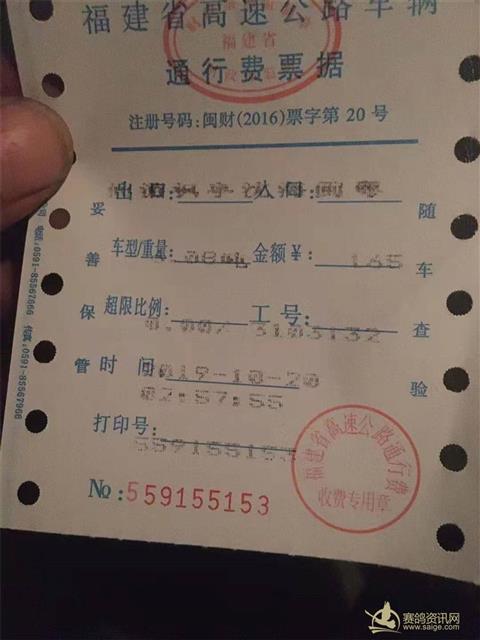 福建省高速公路车辆
福建省
通行费票据
注册号码:闽财(2016)票字第20号
出口: 入口:
车型/重量: 金额¥: 165
超限比例: 工号:
0.00% 3103132
时间 2019-10-20
02:57:55
打印号:
559155153
№:559155153
妥善保管
随车查验
电话:0591-85567966 传真:0591-85567966
福建省高速公路通行费
收费专用章
赛鸽资讯网
www.saige.com